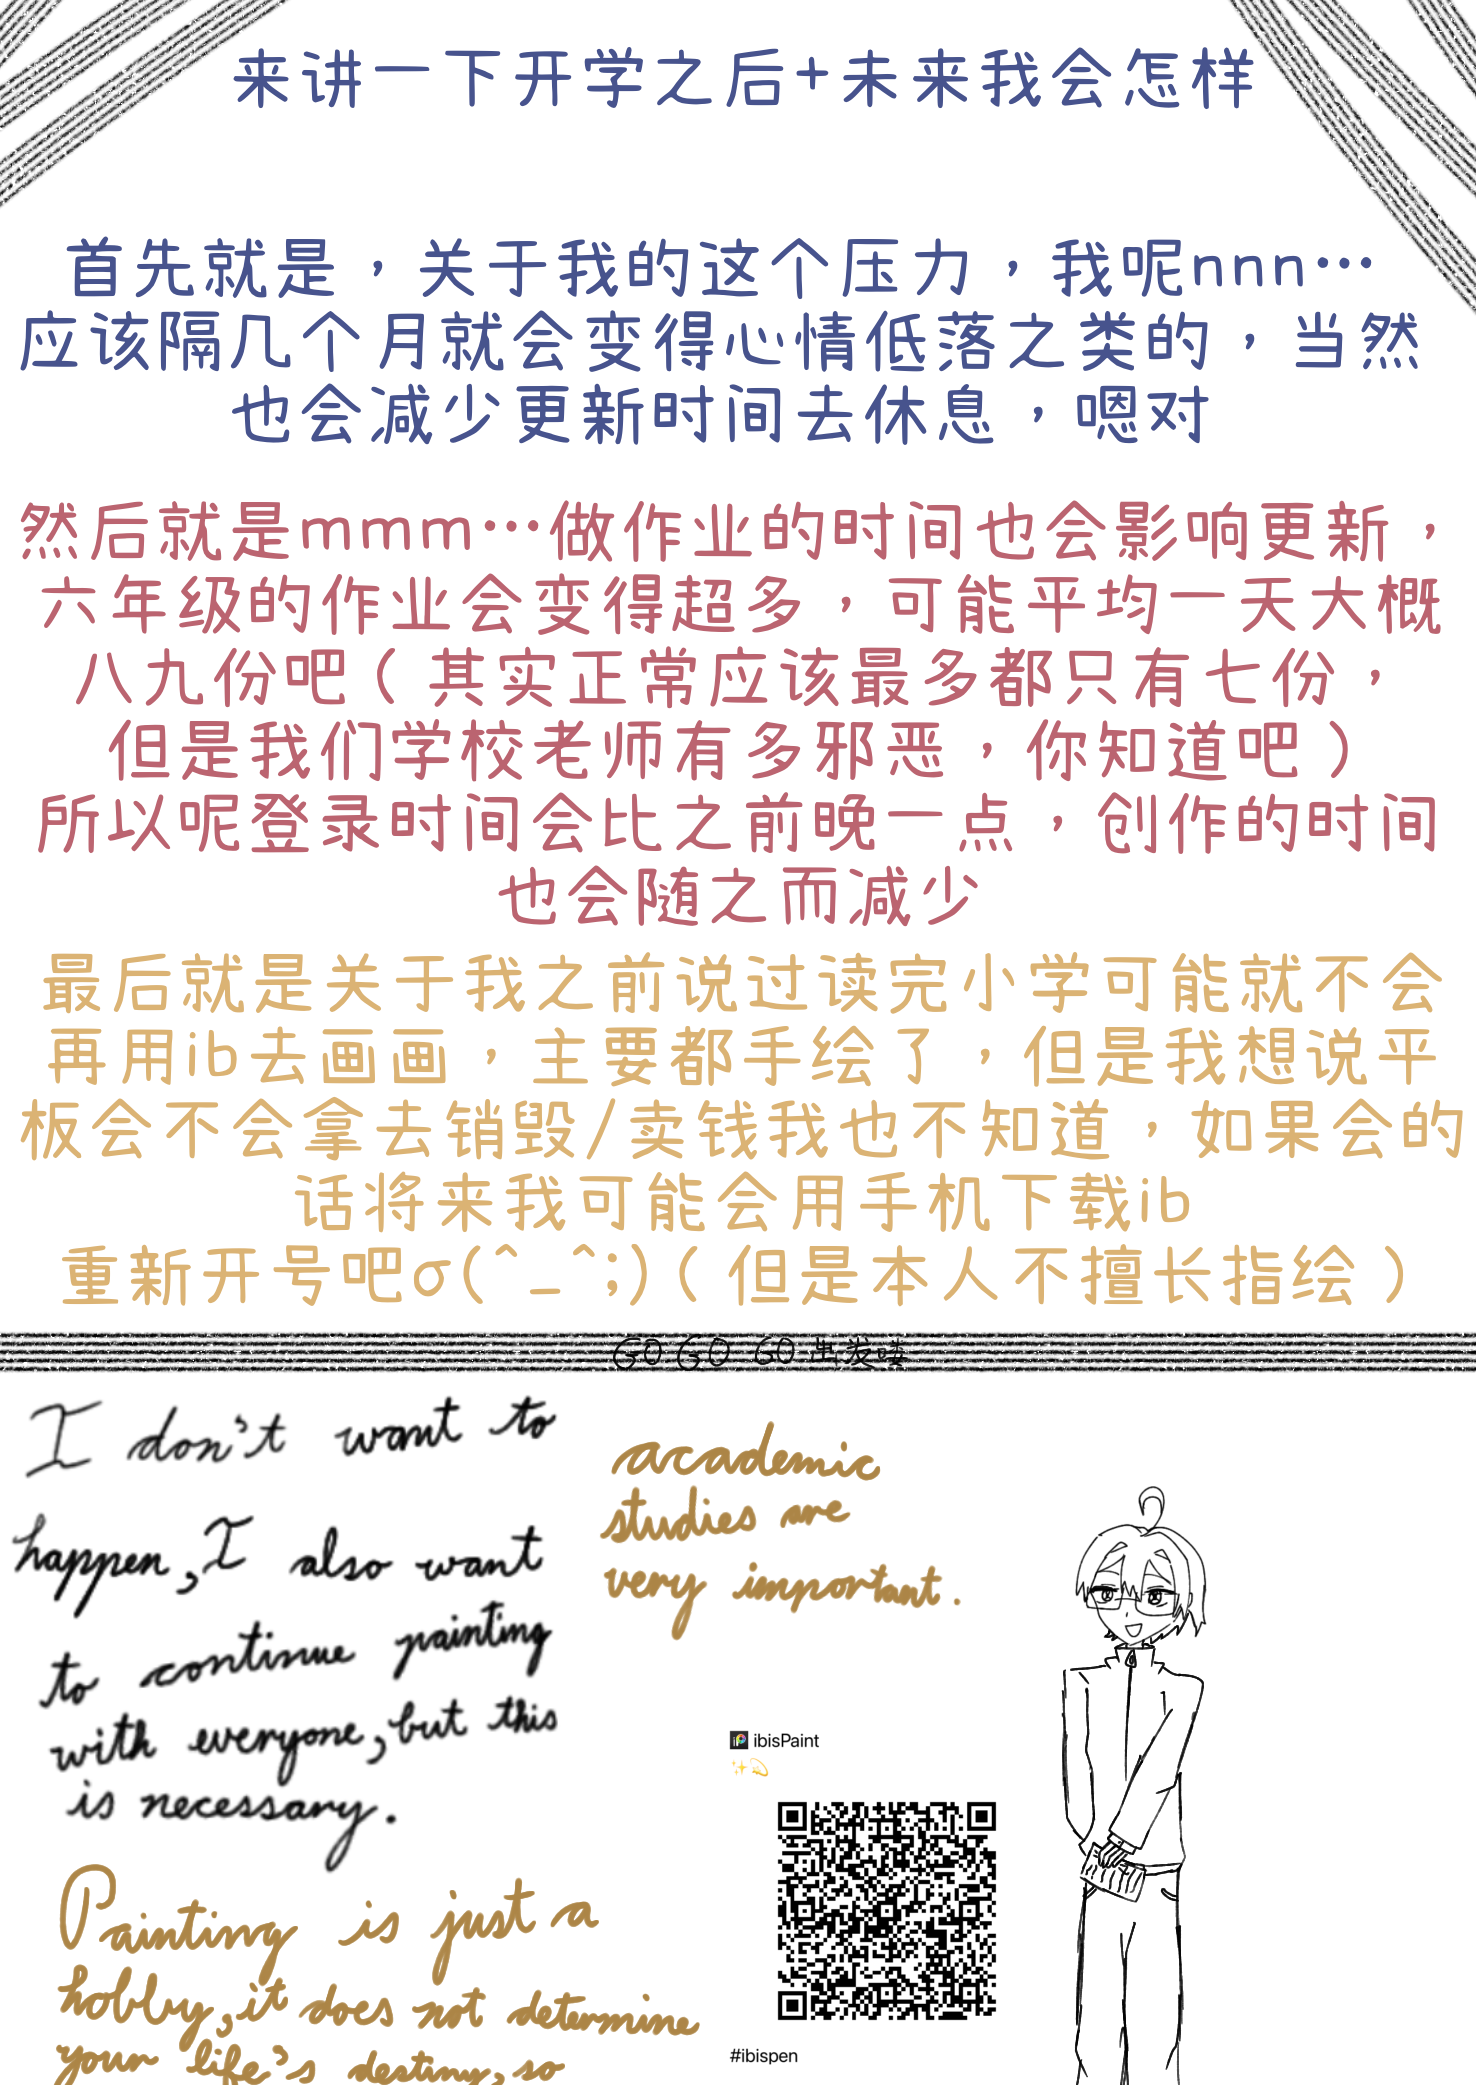 来讲一下开学之后+未来我会怎样
首先就是，关于我的这个压力，我呢nnn…
应该隔几个月就会变得心情低落之类的，当然
也会减少更新时间去休息，嗯对
然后就是mmm…做作业的时间也会影响更新，
六年级的作业会变得超多，可能平均一天大概
八九份吧（其实正常应该最多都只有七份，
但是我们学校老师有多邪恶，你知道吧）
所以呢登录时间会比之前晚一点，创作的时间
也会随之而减少
最后就是关于我之前说过读完小学可能就不会
再用ib去画画，主要都手绘了，但是我想说平
板会不会拿去销毁/卖钱我也不知道，如果会的
话将来我可能会用手机下载ib
重新开号吧σ(^_^;)（但是本人不擅长指绘）
GO GO GO 出发喽
I don't want to
happen, I also want
to continue painting
with everyone, but this
is necessary.
Painting is just a
hobby, it does not determine
your life's destiny, so
academic
studies are
very important.
ibisPaint
#ibispen